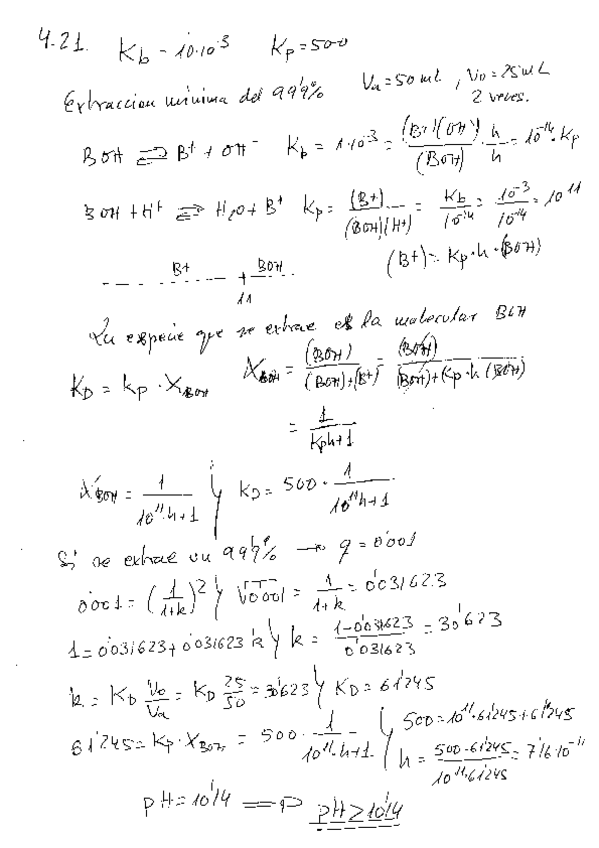 4.21. Kb = 10·10^-3 Kp = 500
Extraccion minima del 99'9% Va = 50 ml, Vo = 25 mL
2 veces.
BOH ⇌ B+ + OH- Kb = 1·10^-3 = (B+)(OH-)/(BOH) · h/h = 10^-14 · Kp
BOH + H+ ⇌ H2O + B+ Kp = (B+)/(BOH)(H+) = Kb/10^-14 = 10^-3/10^-14 = 10^11
B+ BOH (B+) = Kp·h·(BOH)
11
La especie que se extrae es la molecular BOH
KD = Kp · XBOH XBOH = (BOH)/(BOH)+(B+) = (BOH)/(BOH)+Kp·h(BOH)
= 1/Kph+1
XBOH = 1/10^11·h+1 y KD = 500 · 1/10^11h+1
Si se extrae un 99'9% → q = 0'001
0'001 = (1/1+k)^2 y √0'001 = 1/1+k = 0'031623
1 = 0'031623 + 0'031623 k y k = 1-0'031623/0'031623 = 30'623
k = KD Vo/Va = KD 25/50 = 30'623 y KD = 61'245
61'245 = Kp · XBOH = 500 · 1/10^11·h+1 y 500 = 10^11·61'245+61'245
h = 500-61'245/10^11·61'245 = 7'16·10^-11
pH = 10'14 ⟹ pH ≥ 10'14